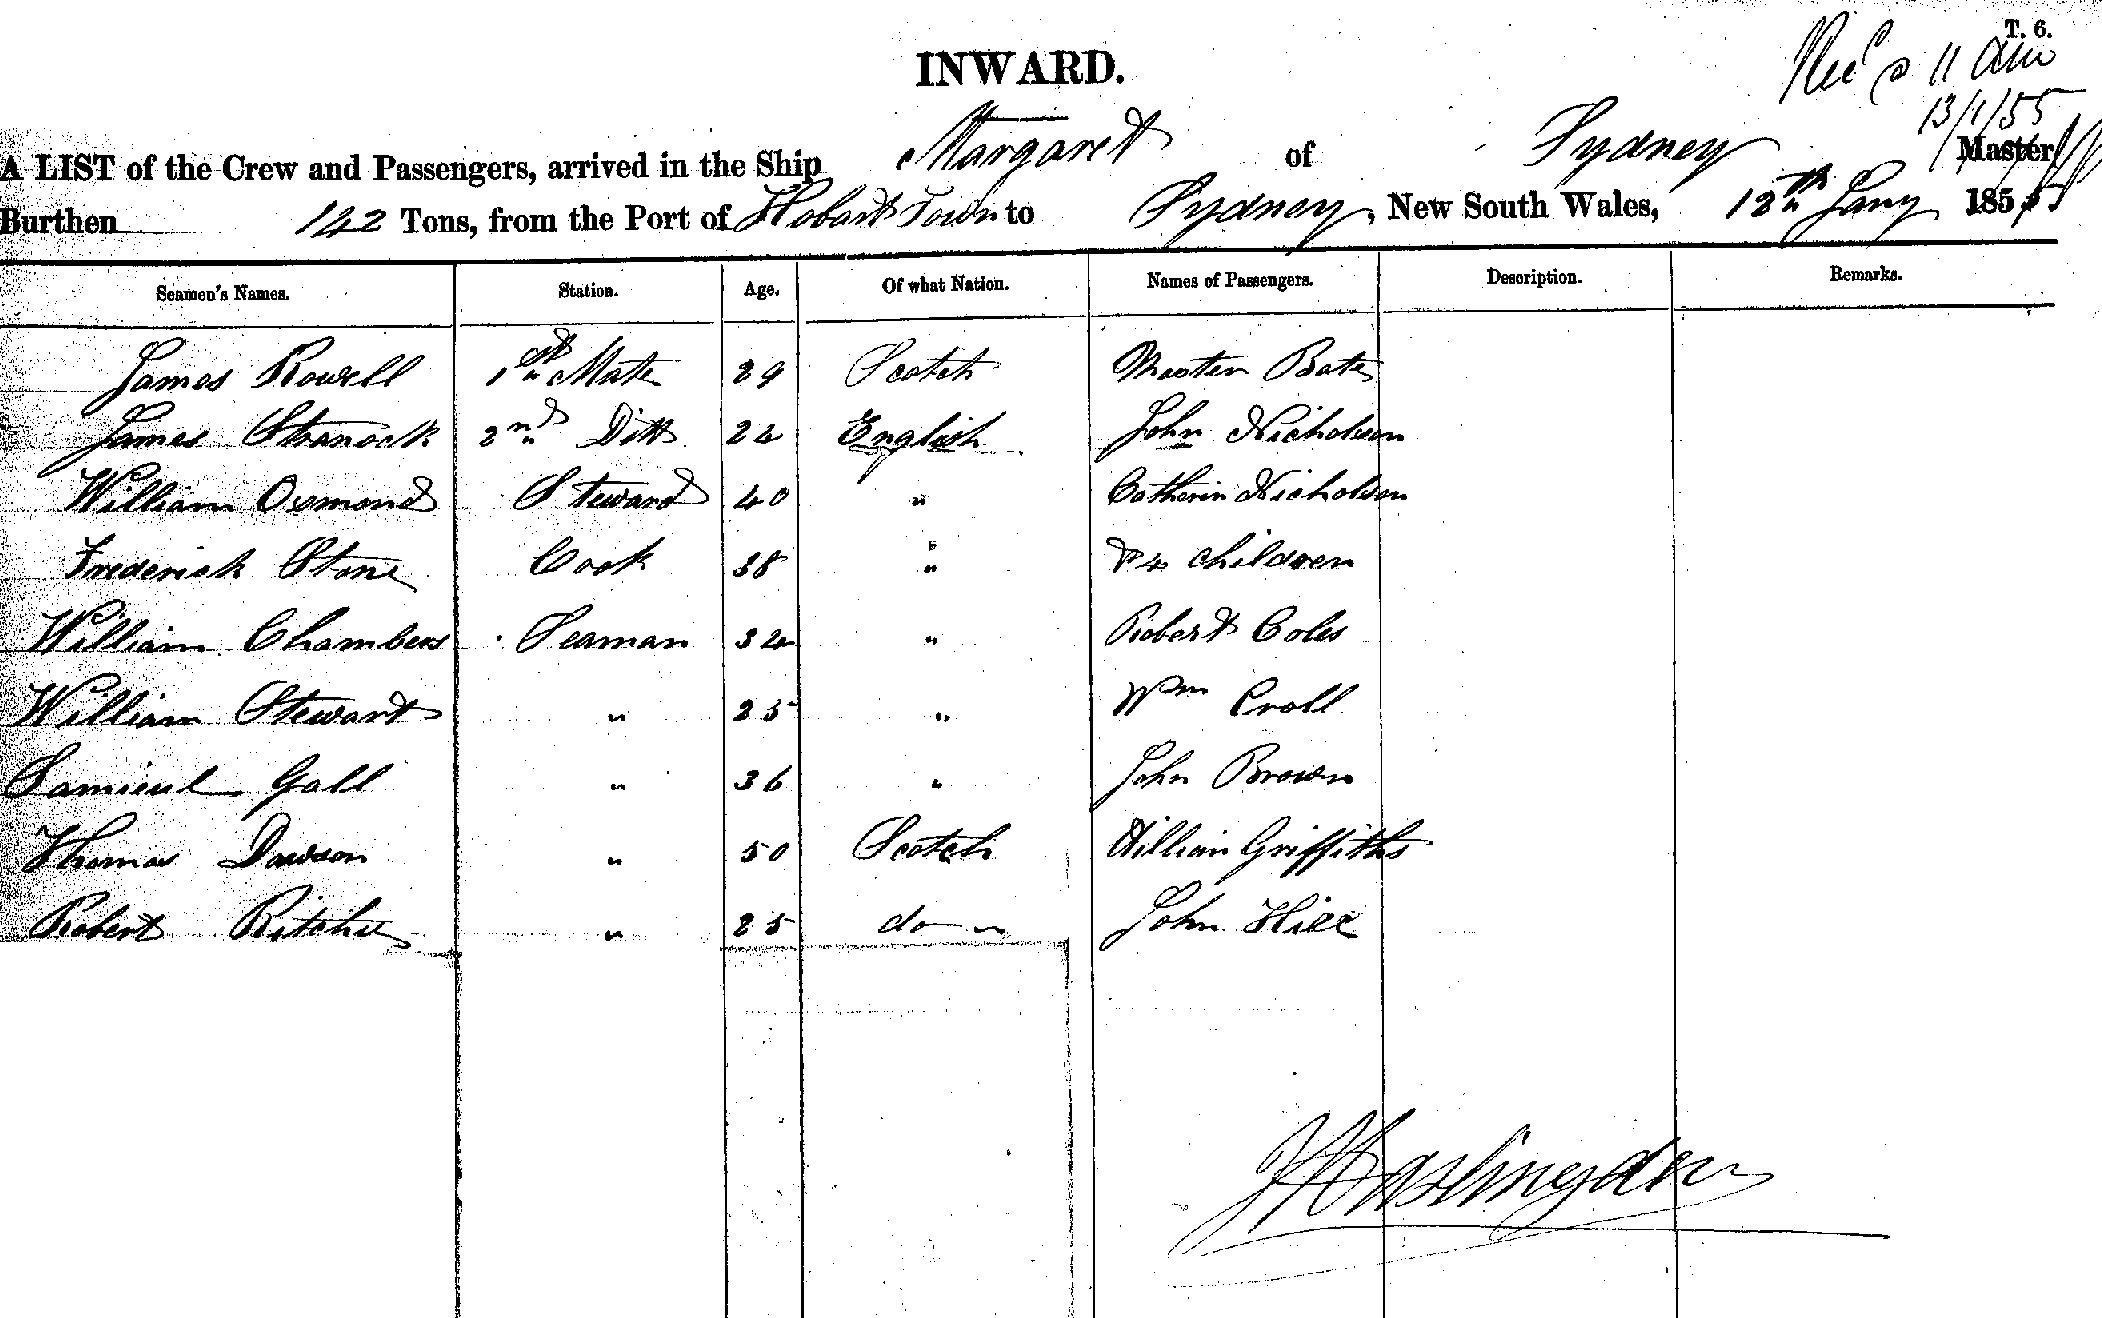 T. 6.
INWARD.
Rec'd 11 am
13/1/55
A LIST of the Crew and Passengers, arrived in the Ship Margaret of Sydney Master
Burthen 142 Tons, from the Port of Hobart Town to Sydney, New South Wales, 12th Jany 1855
Seamen's Names. Station. Age. Of what Nation. Names of Passengers. Description. Remarks.
James Rowell 1st Mate 29 Scotch Master Bate
James Stranock 2nd Ditto 24 English John Nicholson
William Osmond Steward 40 " Catherin Nicholson
Frederick Stone Cook 38 " & 4 children
William Chambers Seaman 34 " Robert Coles
William Stewart " 25 " Wm Croll
Samieul Gall " 36 " John Brown
Thomas Dawson " 50 Scotch William Griffiths
Robert Ritchie " 25 do " John Hill
J Haslingden